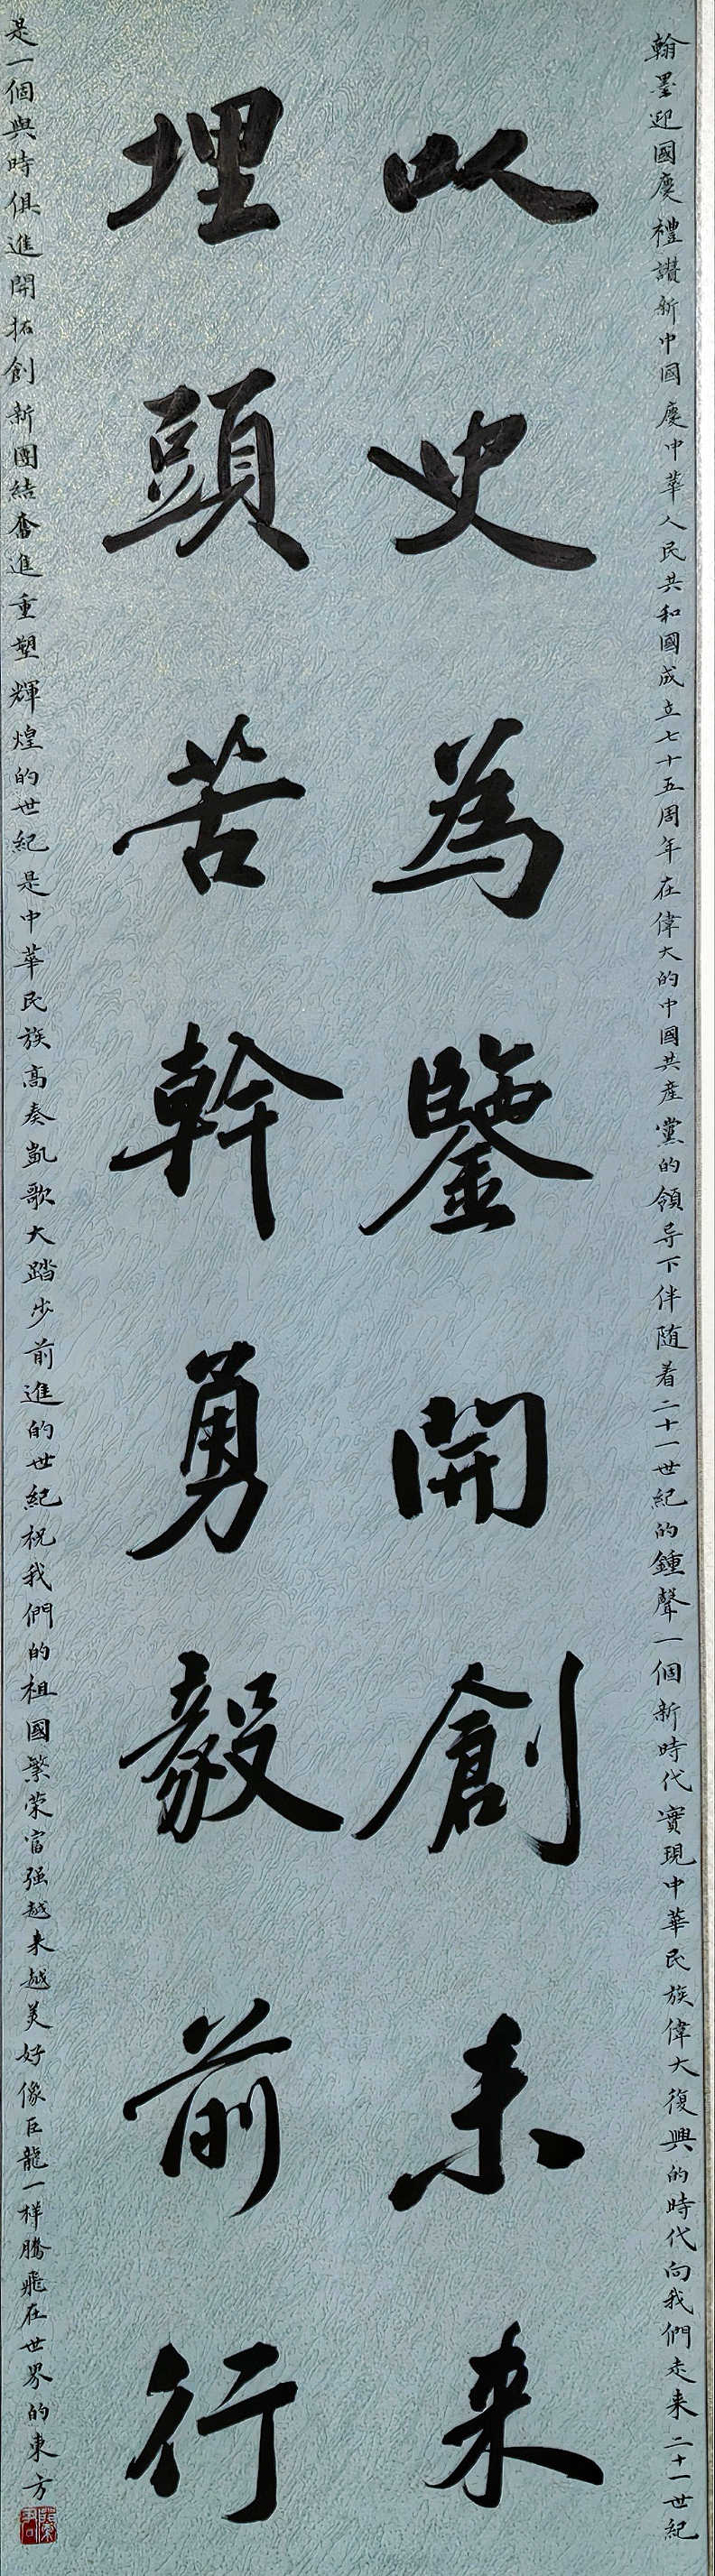 翰墨迎國慶禮讃新中國慶中華人民共和國成立七十五周年在偉大的中國共產黨的領导下伴随着二十一世紀的鍾聲一個新時代實現中華民族偉大復興的時代向我們走来二十一世紀
以史為鑒開創未来
埋頭苦幹勇毅前行
是一個與時俱進開拓創新團結奮進重塑輝煌的世紀是中華民族高奏凱歌大踏步前進的世紀祝我們的祖國繁荣富强越来越美好像巨龍一样騰飛在世界的東方